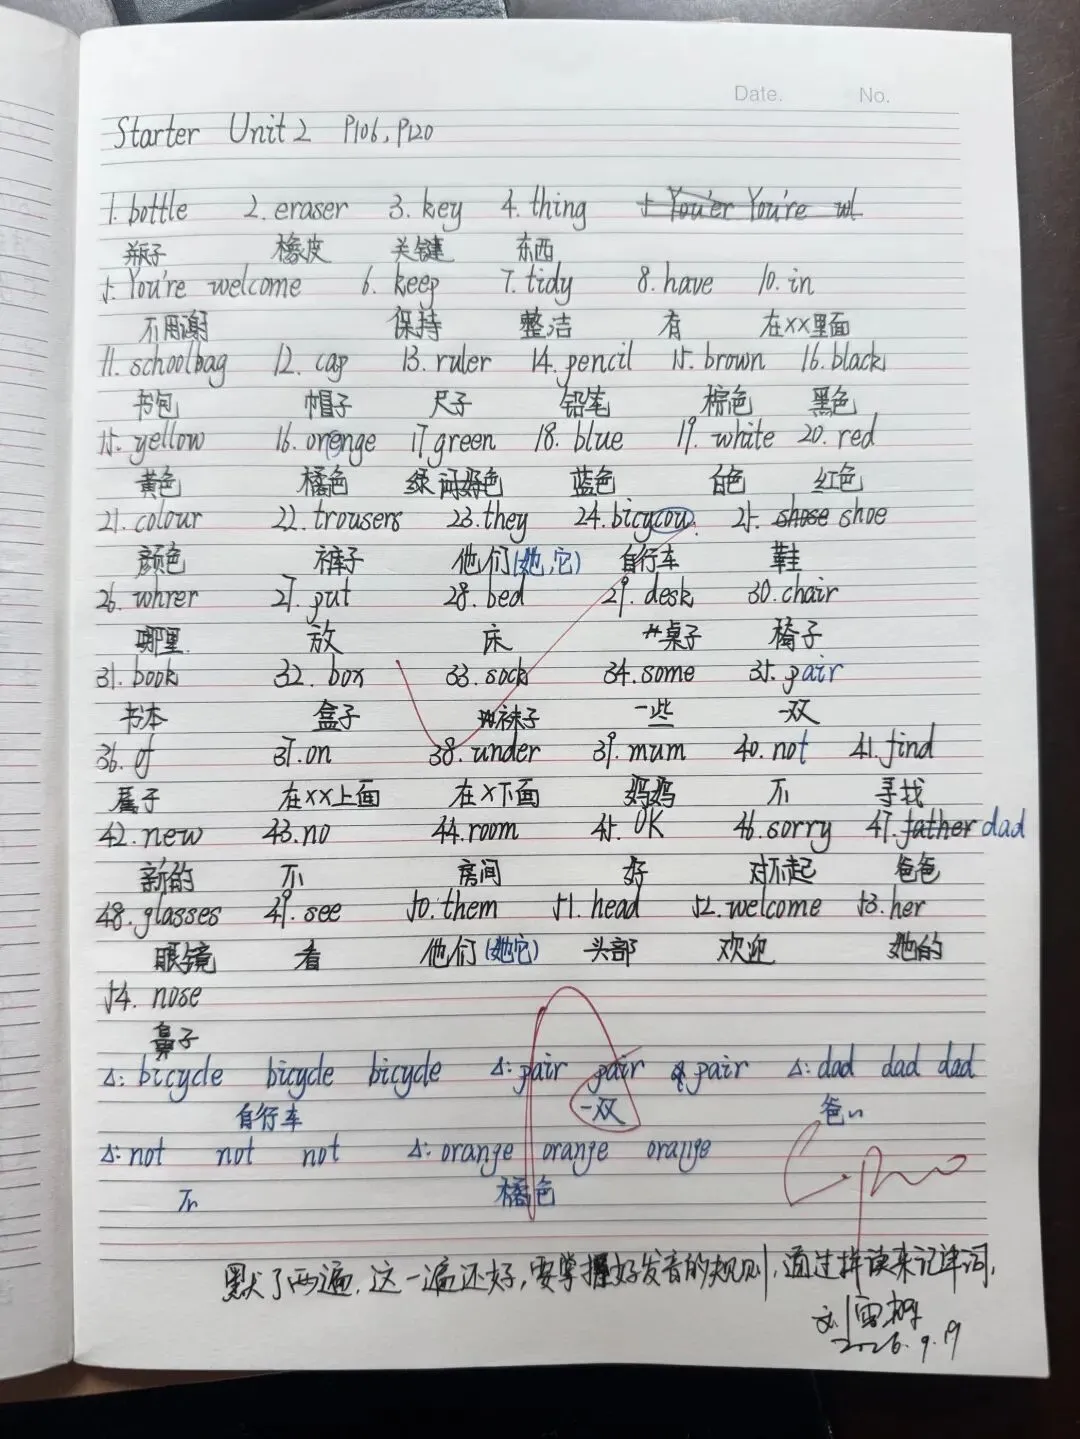 Date. No.
Starter Unit 2 P106, P120
1. bottle 2. eraser 3. key 4. thing 5 You'er You're wl
瓶子 橡皮 关键 东西
5. You're welcome 6. keep 7. tidy 8. have 10. in
不用谢 保持 整洁 有 在xx里面
11. schoolbag 12. cap 13. ruler 14. pencil 15. brown 16. black
书包 帽子 尺子 铅笔 棕色 黑色
15. yellow 16. orenge 17 green 18. blue 19. white 20. red
黄色 橘色 绿 色 蓝色 白色 红色
21. colour 22. trousers 23. they 24. bicycou 25. shose shoe
颜色 裤子 他们(她,它) 自行车 鞋
26. whrer 27. put 28. bed 29. desk 30. chair
哪里 放 床 桌子 椅子
31. book 32. box 33. sock 34. some 35. pair
书本 盒子 袜子 一些 一双
36. of 37. on 38. under 39. mum 40. not 41. find
属于 在xx上面 在x下面 妈妈 不 寻找
42. new 43. no 44. room 45. OK 46. sorry 47. father dad
新的 不 房间 好 对不起 爸爸
48. glasses 49. see 50. them 51. head 52. welcome 53. her
眼镜 看 他们(她它) 头部 欢迎 她的
54. nose
鼻子
Δ: bicycle bicycle bicycle Δ: pair pair pair Δ: dad dad dad
自行车 一双 爸
Δ: not not not Δ: orange orange orange
不 橘色
默了两遍,这一遍还好,要掌握好发音的规则,通过拼读来记单词,
刘雪梅
2026.9.19